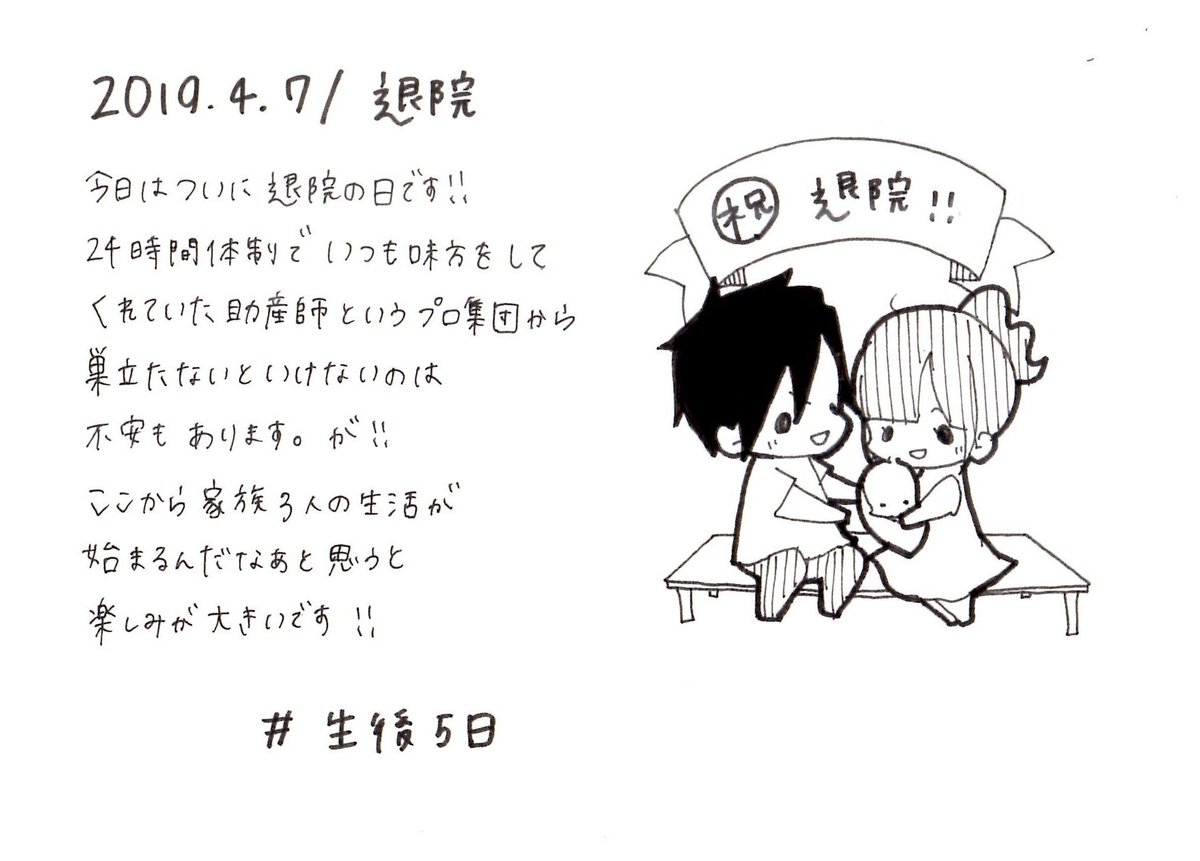 2019.4.7/ 退院
今日はついに退院の日です!!
24時間体制で いつも味方をして
くれていた助産師というプロ集団から
巣立たないといけないのは
不安も あります。が!!
ここから家族3人の生活が
始まるんだなあと思うと
楽しみが大きいです!!
# 生後5日
祝 退院!!